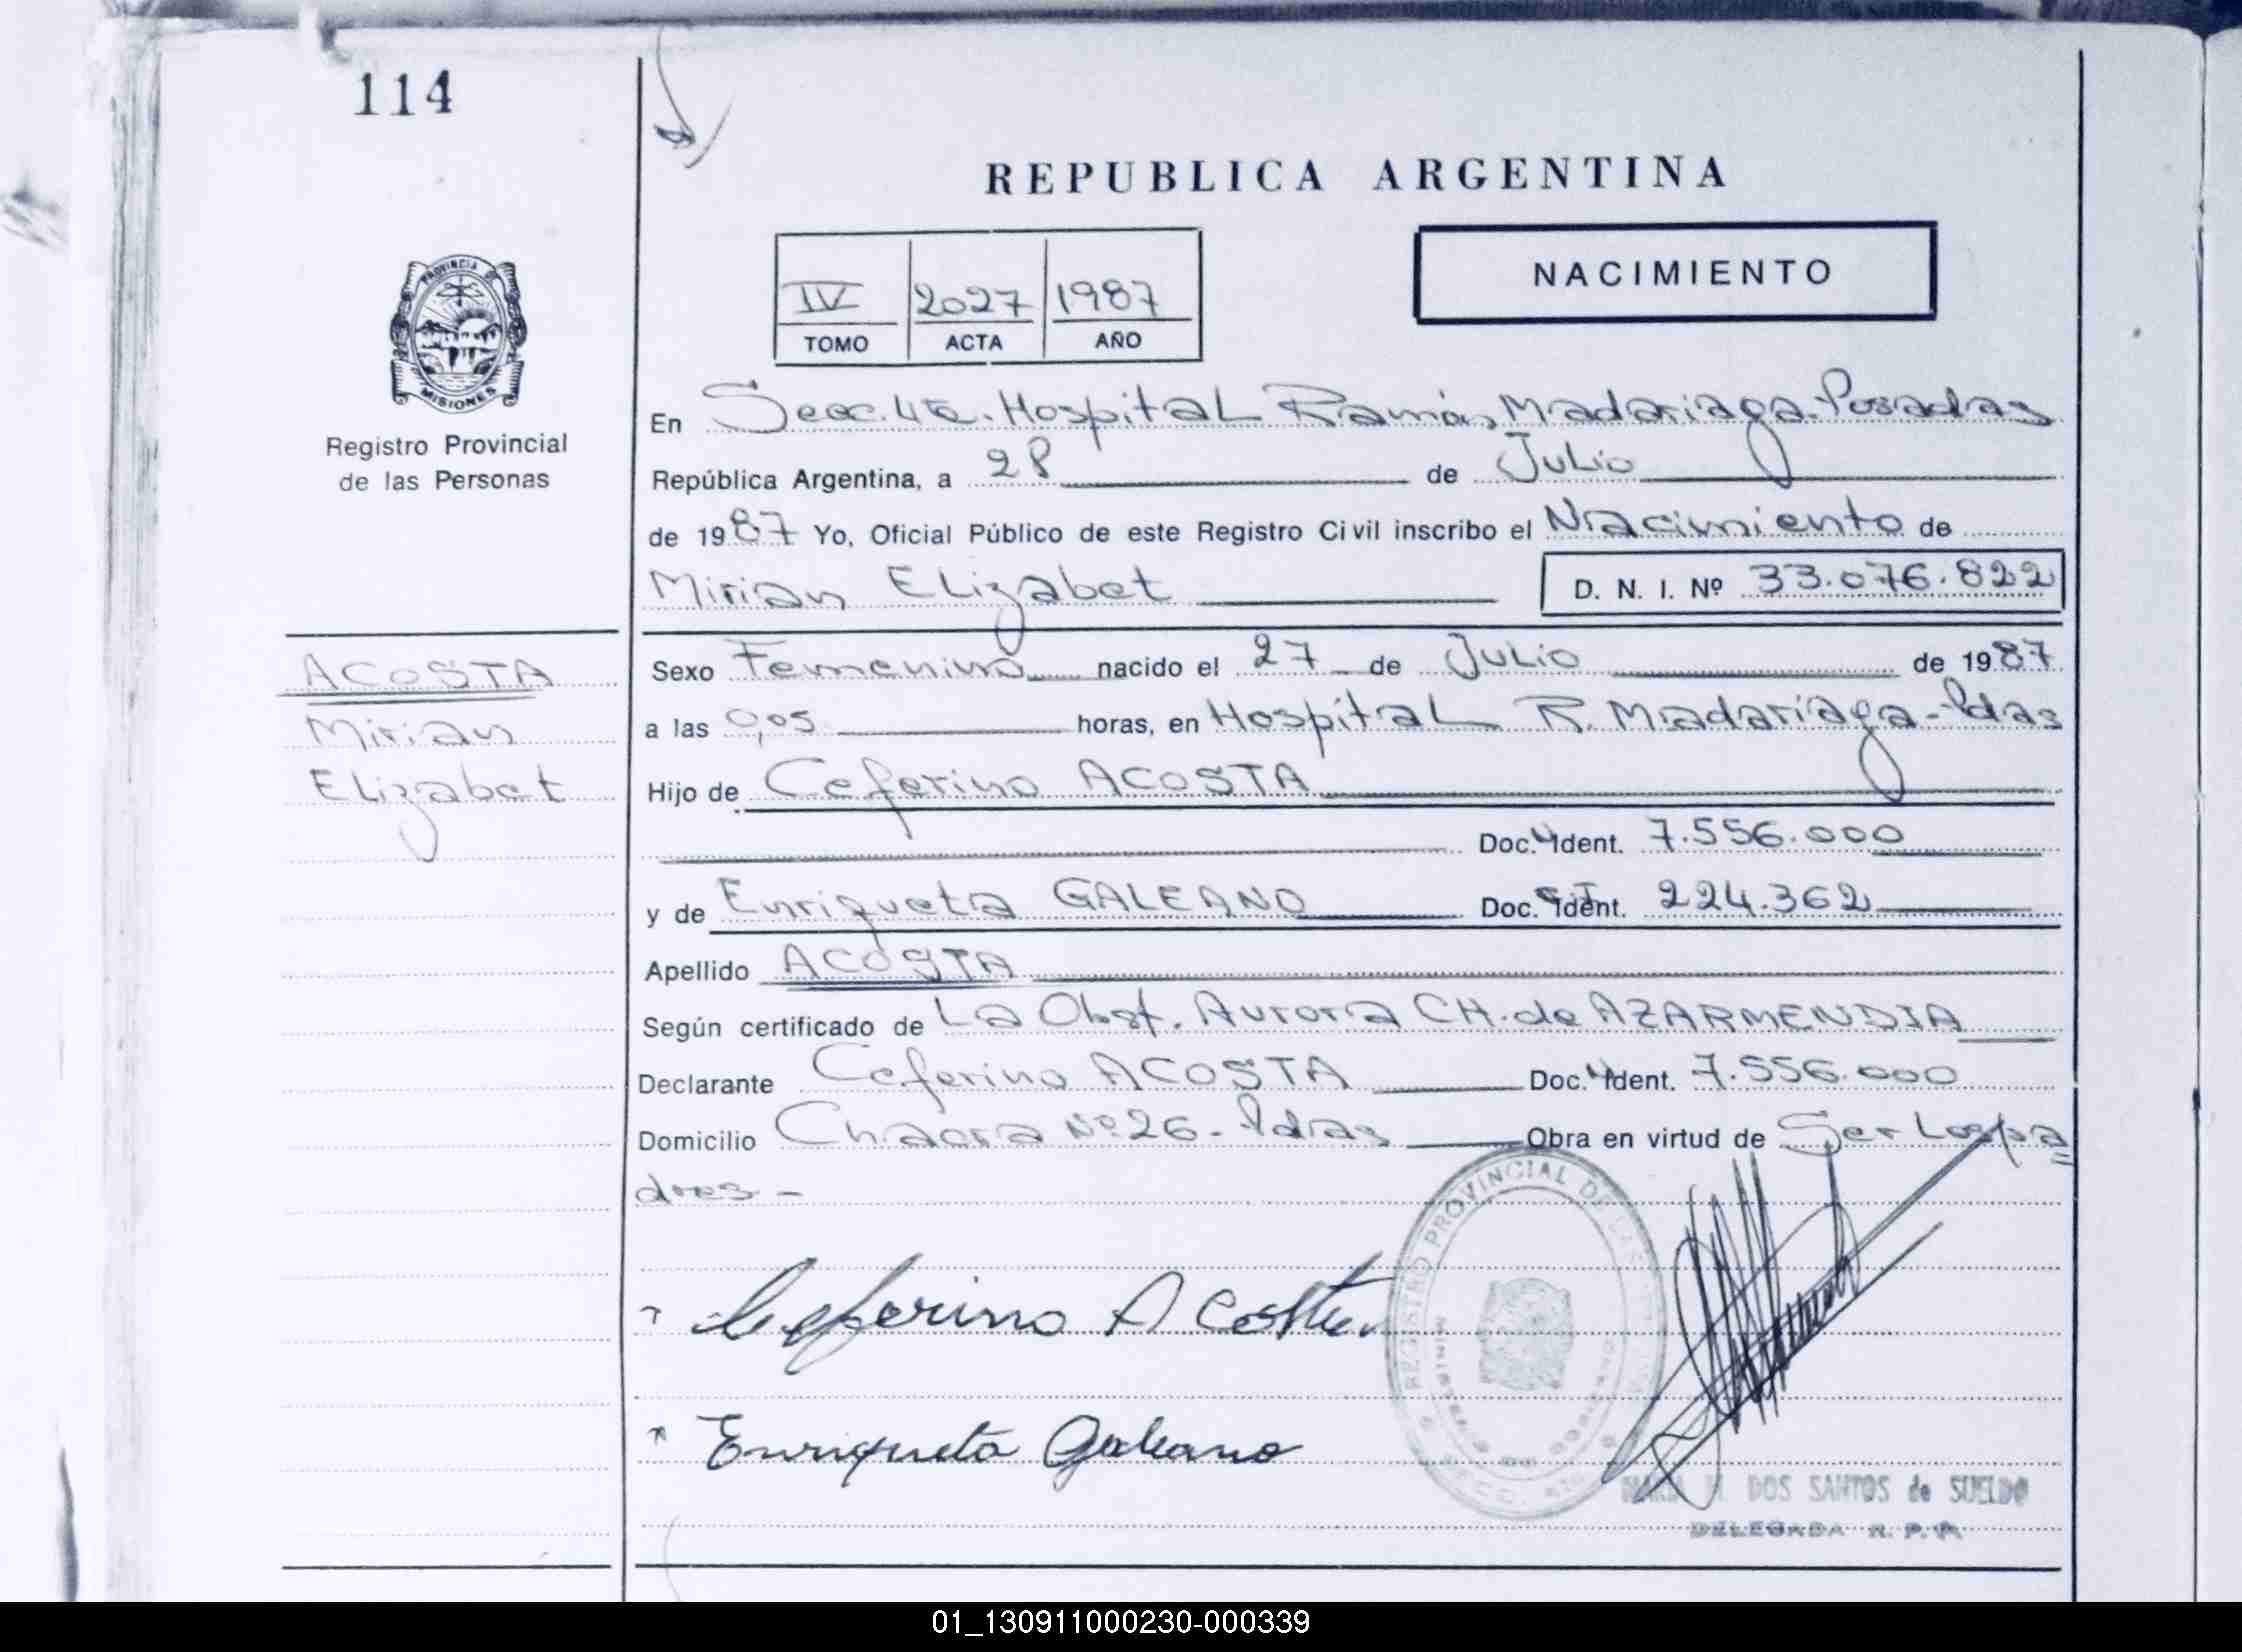 114
REPUBLICA ARGENTINA
NACIMIENTO
IV 2027 1987
TOMO ACTA AÑO
PROVINCIA D
MISIONES
Registro Provincial
de las Personas
En Secc. 4ta. Hospital Ramón Madariaga-Posadas
República Argentina, a 28 de Julio
de 1987 Yo, Oficial Público de este Registro Civil inscribo el Nacimiento de
Mirian Elizabet D. N. I. Nº 33.076.822
ACOSTA
Mirian
Elizabet
Sexo Femenino nacido el 27 de Julio de 1987
a las 0,05 horas, en Hospital R. Madariaga-Pdas
Hijo de Ceferino ACOSTA
Doc. Ident. 7.556.000
y de Enriqueta GALEANO Doc. Ident. 224.362
Apellido ACOSTA
Según certificado de La Obst. Aurora CH. de AZARMENDIA
Declarante Ceferino ACOSTA Doc. Ident. 7.556.000
Domicilio Chacra Nº 26-Pdas Obra en virtud de Ser Los pa
dres -
Ceferino Acosta
Enriqueta Galeano
REGISTRO PROVINCIAL DE LAS
M. DOS SANTOS de SUELDO
DELEGADA R. P. P.
01_130911000230-000339